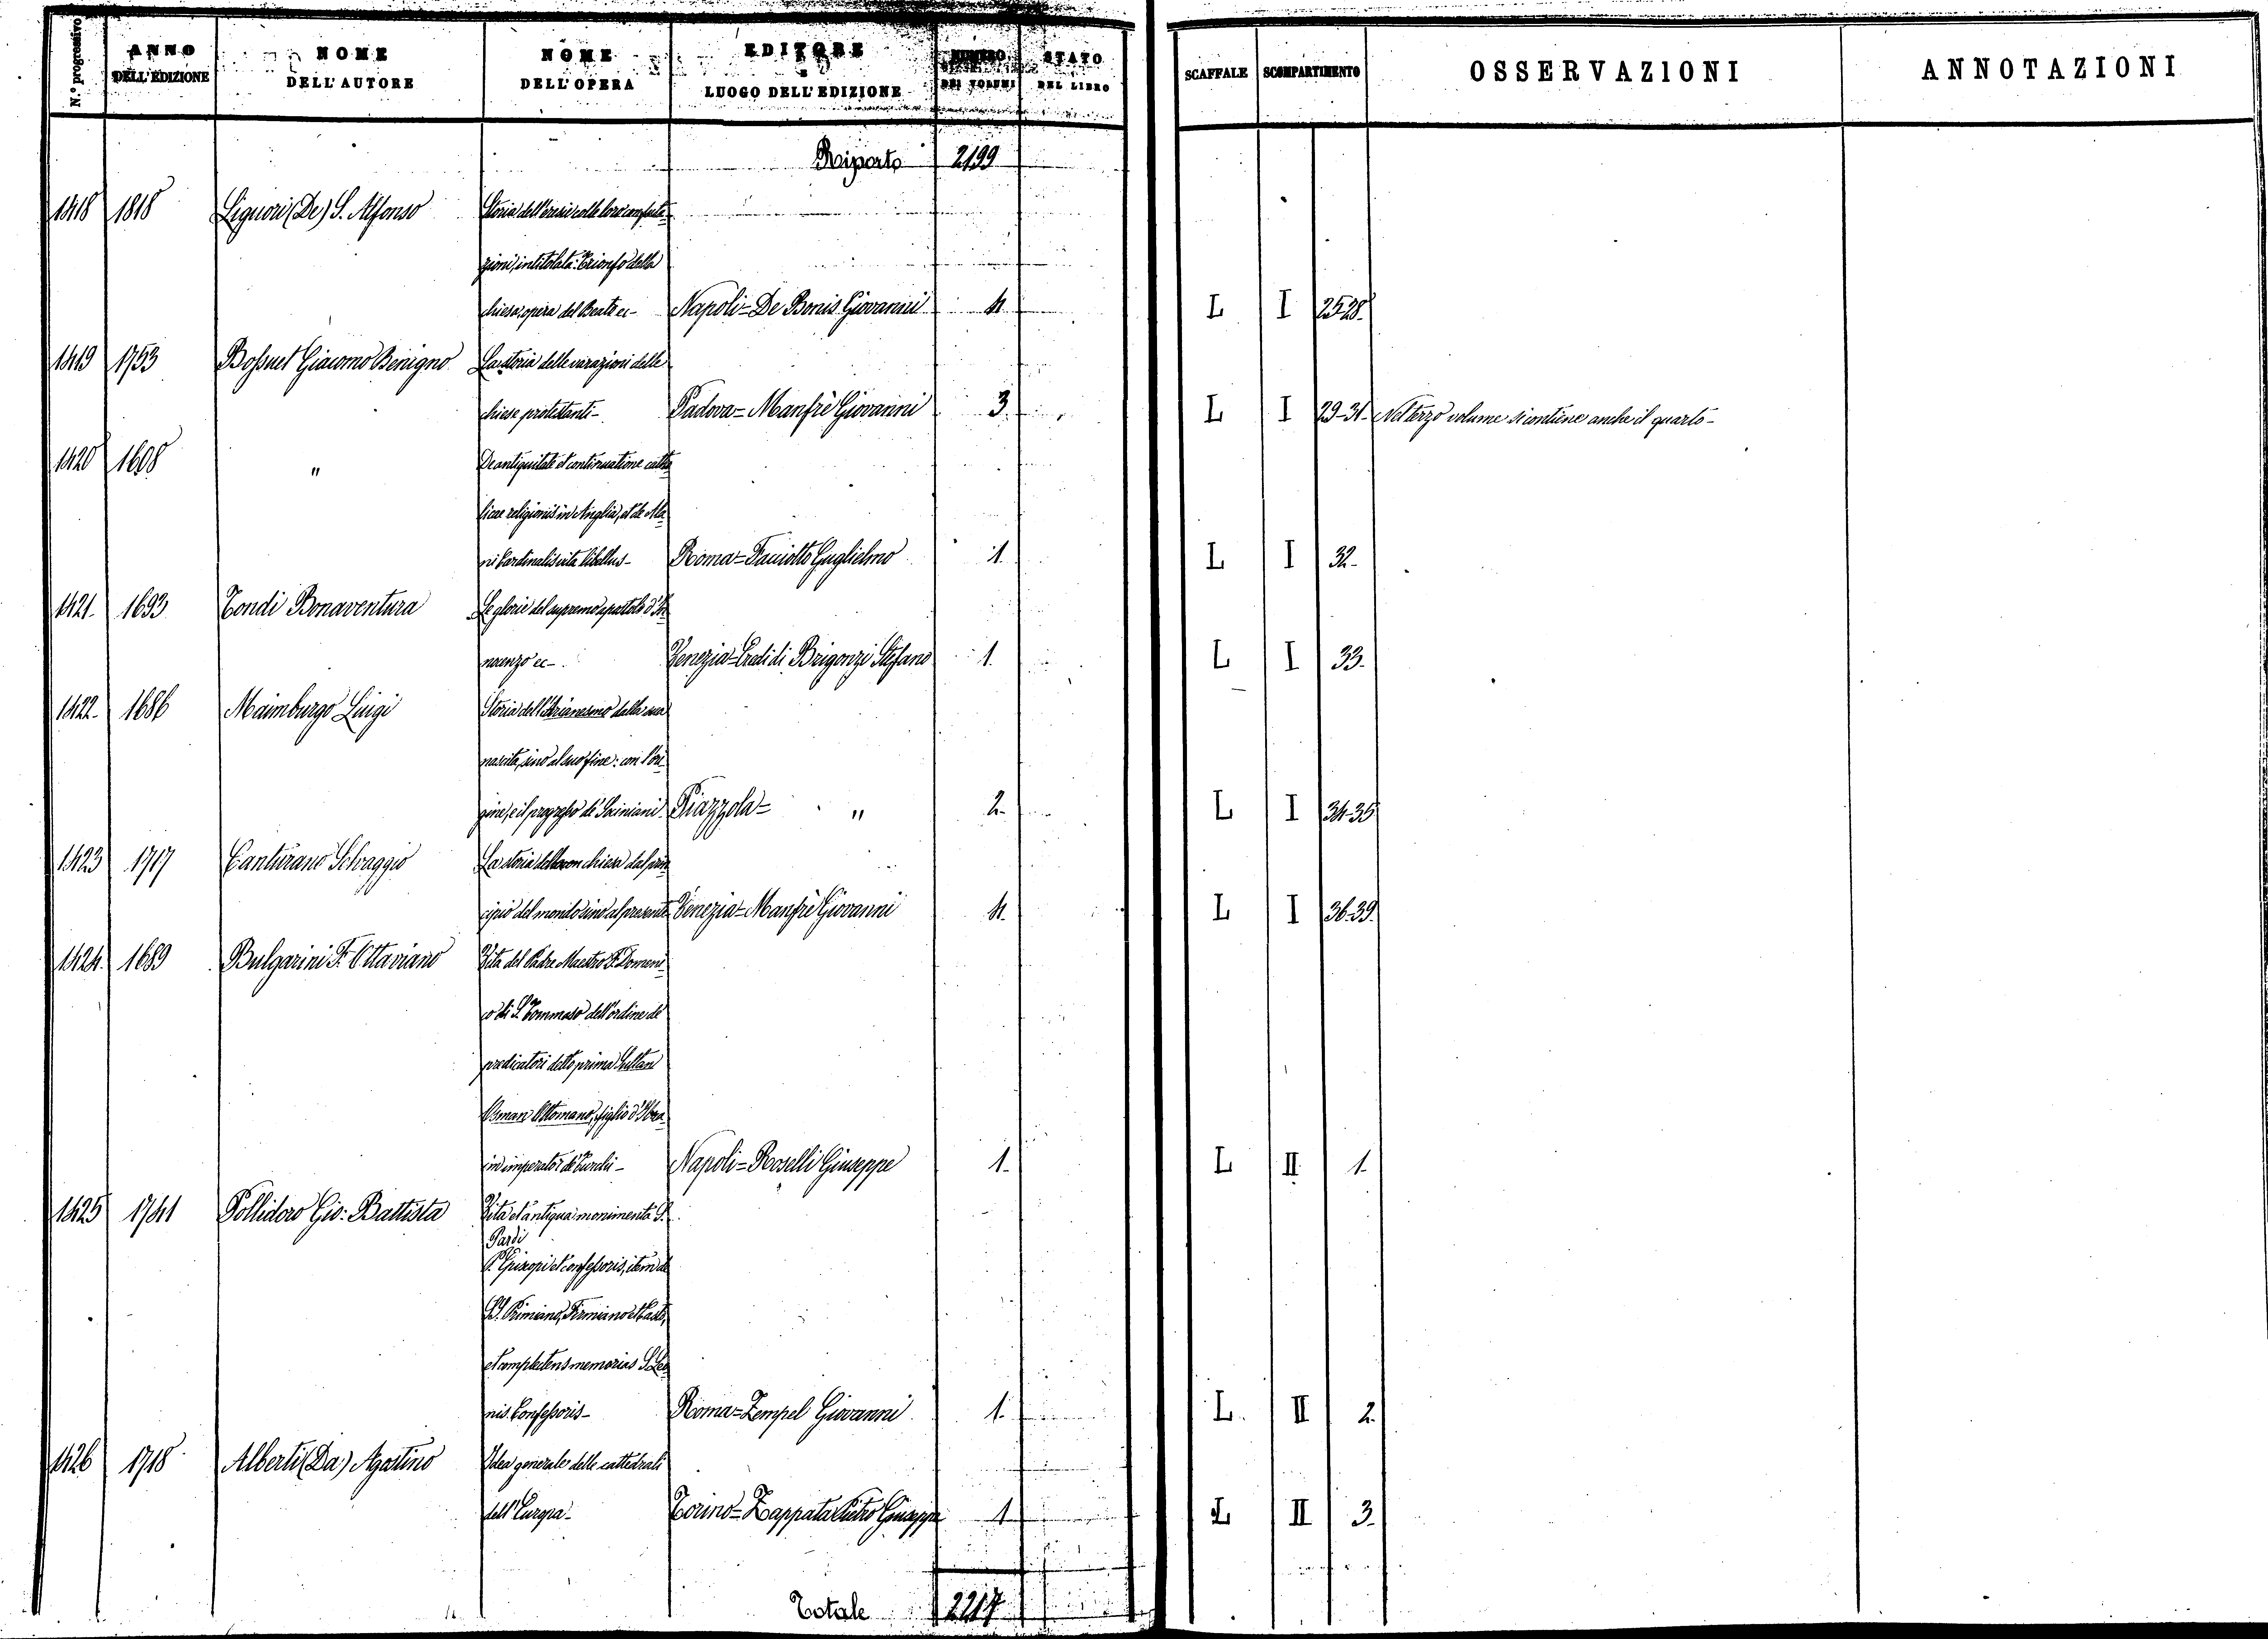 N.º progressivo
ANNO DELL'EDIZIONE
NOME DELL'AUTORE
NOME DELL'OPERA
EDITORE E LUOGO DELL'EDIZIONE
NUMERO DEI VOLUMI
STATO DEL LIBRO
SCAFFALE
SCOMPARTIMENTO
OSSERVAZIONI
ANNOTAZIONI
Riporto 2199
1418 1818 Liguori (De) S. Alfonso Storia dell'eresie colle loro confuta-
zioni, intitolata: Trionfo della
chiesa, opera del Beato ec- Napoli = De Bonis Giovanni 4 L I 25-28.
1419 1753 Bossuet Giacomo Benigno La storia delle variazioni delle
chiese protestanti- Padova = Manfrè Giovanni 3. L I 29-31- Nel terzo volume si contiene anche il quarto-
1420 1608 " De antiquitate et continuatione catho
licae religionis in Anglia, et de Ala
ni Cardinalis vita libellus- Roma = Faciotto Guglielmo 1. L I 32-
1421. 1693 Tondi Bonaventura Le glorie del supremo apostolo d'In
nocenzo ec- Venezia = Eredi di Brigonzi Stefano 1. L I 33.
1422. 1686 Maimburgo Luigi Storia dell'Arianesmo dalla sua
nascita, sino al suo fine: con l'ori
gine, e il progresso de' Sociniani. Piazzola = " 2. L I 34-35
1423 1717 Canturano Selvaggio La storia della chiesa dal prin
cipio del mondo sino al presente Venezia = Manfrè Giovanni 4. L I 36-39.
1424. 1689 Bulgarini F. Ottaviano Vita del Padre Maestro F. Domeni
co di S. Tommaso dell'ordine de'
predicatori detto prima Sultan
Osman Ottomano, figlio d'Ibra
im imperator de' Turchi- Napoli = Roselli Giuseppe 1. L II 1.
1425 1741 Pollidoro Gio: Battista Vita et antiqua monimenta S.
Pardi
Episcopi et confessoris, item de
SS. Primiano, Firmiano et Casto,
et complectens memorias S. Leo
nis Confessoris- Roma = Zempel Giovanni 1. L. II 2.
1426 1718 Alberti (Da) Agostino Idea generale delle cattedrali
dell'Europa- Torino = Zappata Pietro Giuseppe 1 L II 3.
Totale 2217